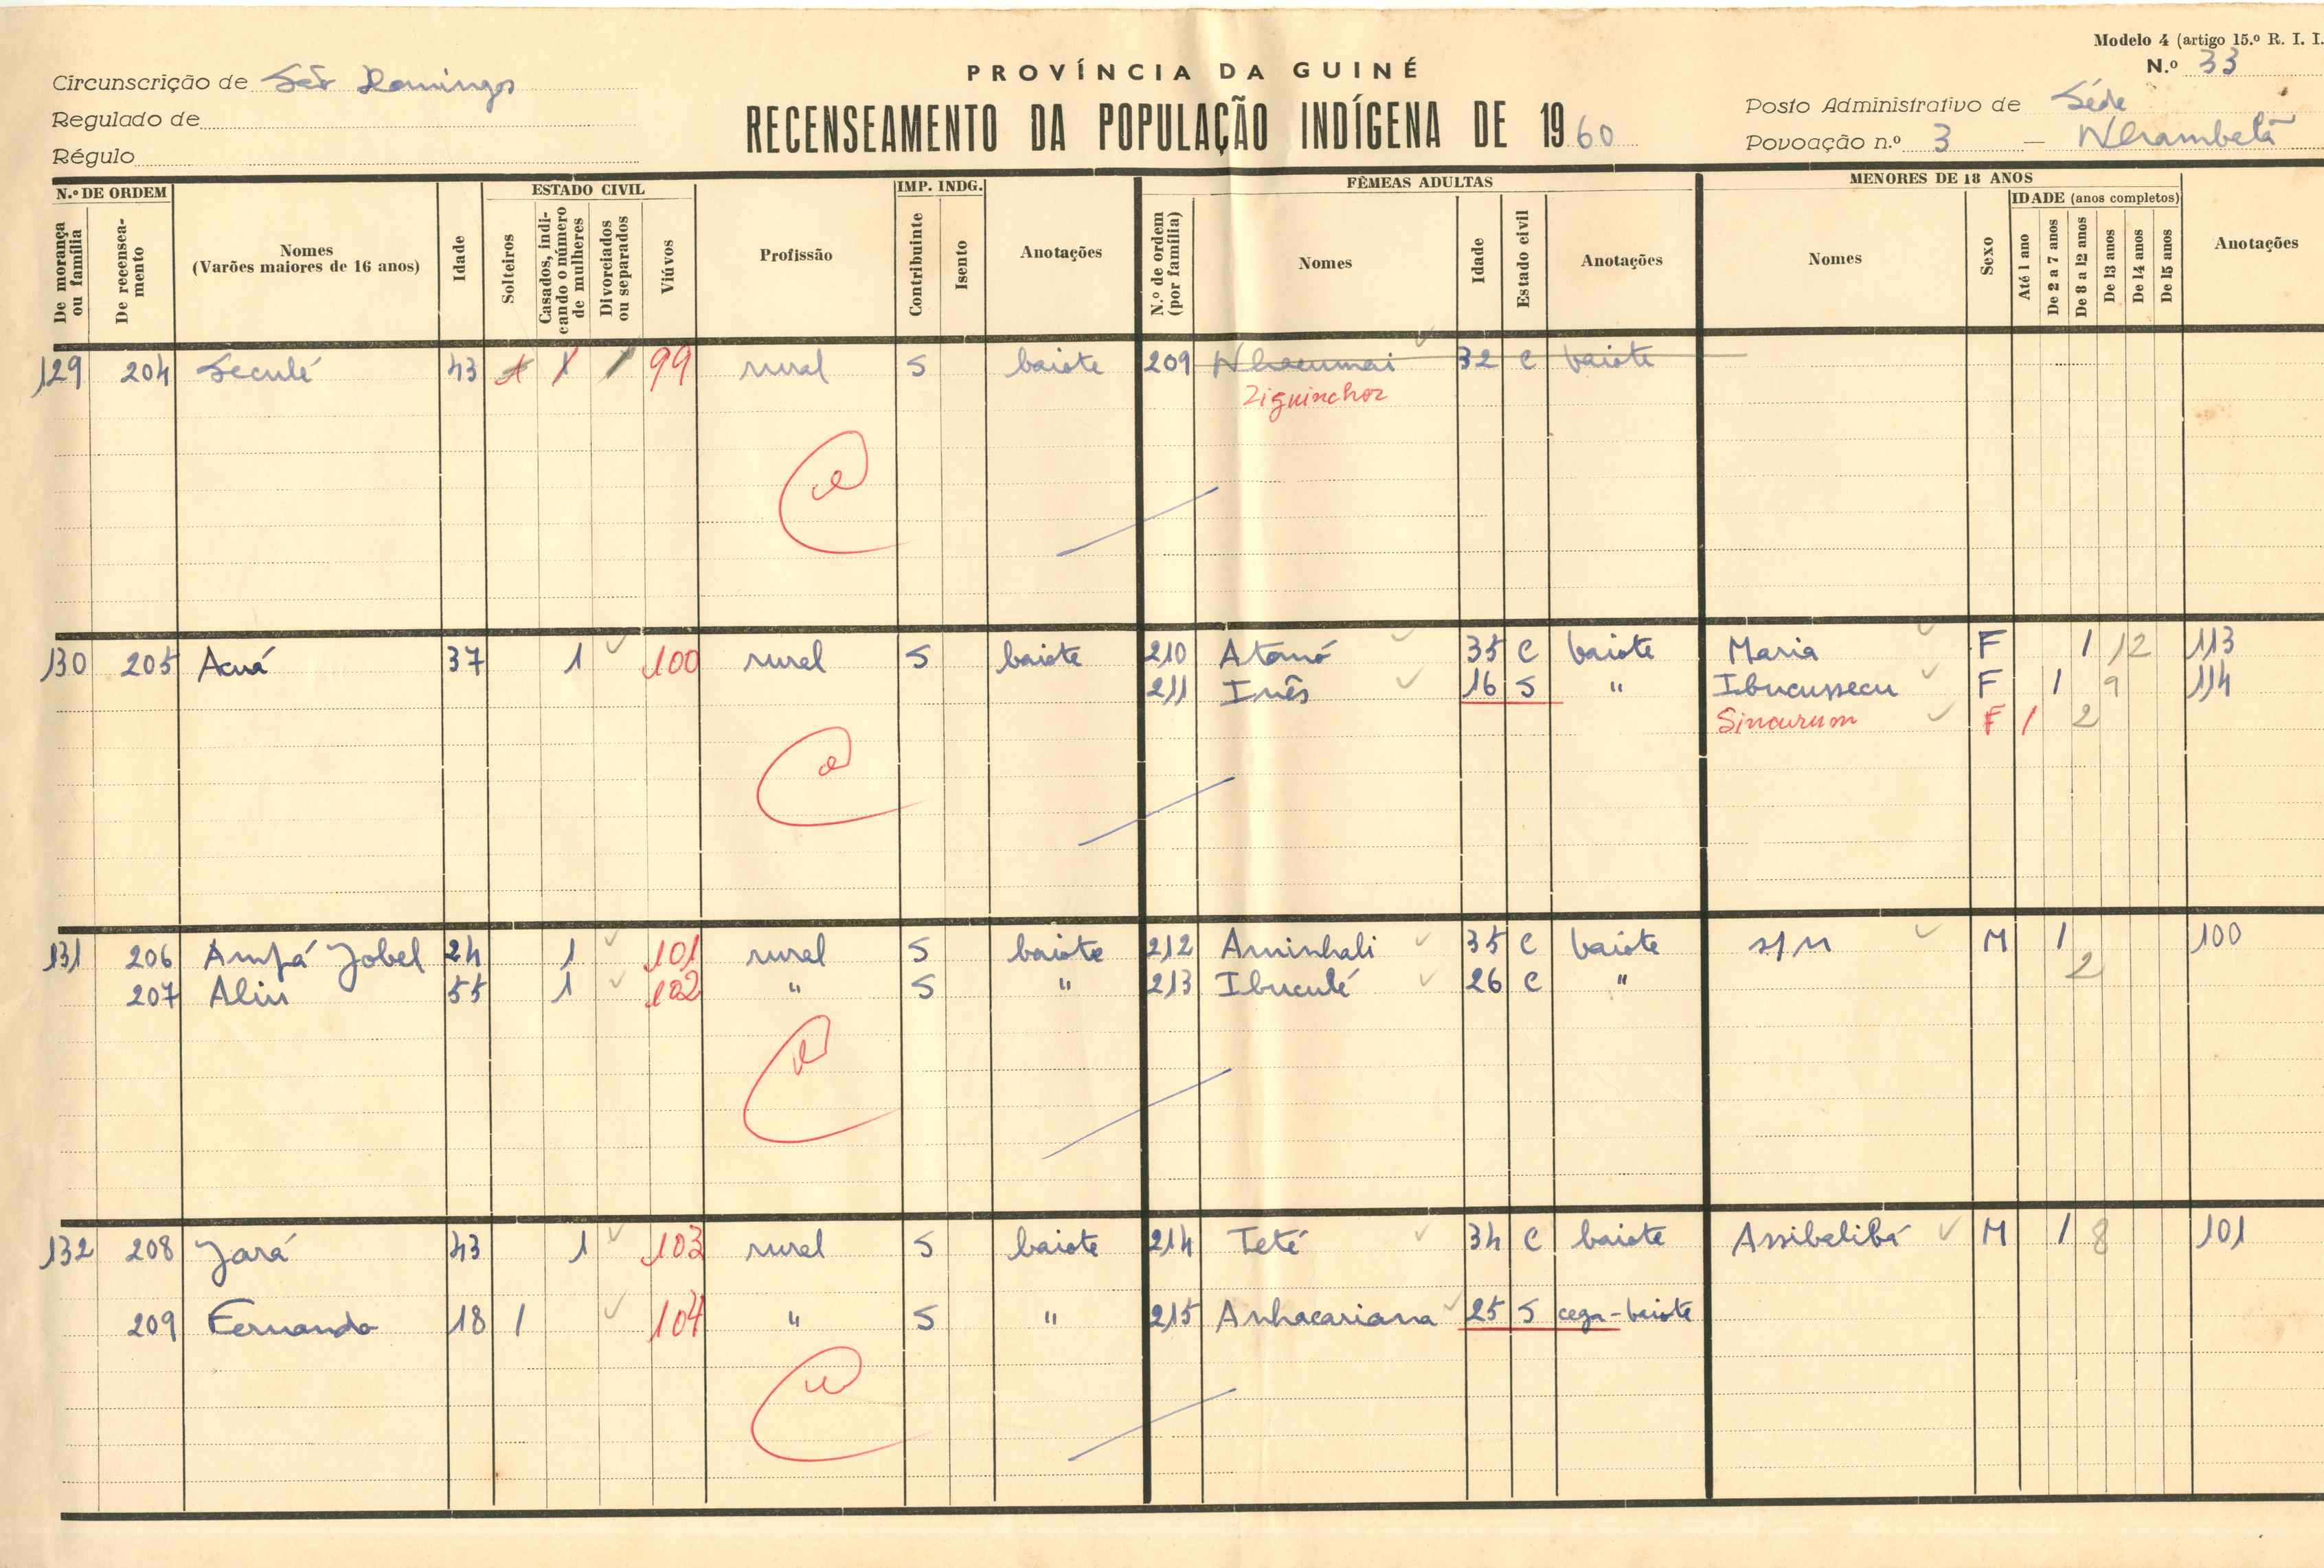 Modelo 4 (artigo 15.º R. I. I.
N.º 33
PROVÍNCIA DA GUINÉ
RECENSEAMENTO DA POPULAÇÃO INDÍGENA DE 1960
Circunscrição de São Domingos
Regulado de
Régulo
Posto Administrativo de Séde
Povoação n.º 3 — Nhambelã
N.º DE ORDEM
De morança ou família
De recenseamento
Nomes
(Varões maiores de 16 anos)
Idade
ESTADO CIVIL
Solteiros
Casados, indicando o número de mulheres
Divorciados ou separados
Viúvos
Profissão
IMP. INDG.
Contribuinte
Isento
Anotações
FÊMEAS ADULTAS
N.º de ordem (por família)
Nomes
Idade
Estado civil
Anotações
MENORES DE 18 ANOS
Nomes
Sexo
IDADE (anos completos)
Até 1 ano
De 2 a 7 anos
De 8 a 12 anos
De 13 anos
De 14 anos
De 15 anos
Anotações
129 204 Seculé 43 1 1 99 rural S baiote 209 Nhacumai 32 C baiote
Ziguinchor
130 205 Acuá 37 1 100 rural S baiote 210 Atomó 35 C baiote Maria F 1 12 113
211 Inês 16 S " Ibucussecu F 1 9 114
Sincurum F 1 2
131 206 Ampá Jobel 24 1 101 rural S baiote 212 Aminhali 35 C baiote s/n M 1 2 100
207 Aliu 55 1 102 " S " 213 Ibuculé 26 C "
132 208 Jará 43 1 103 rural S baiote 214 Teté 34 C baiote Assibelibá M 1 8 101
209 Fernando 18 1 104 " S " 215 Anhacariana 25 S cega-baiote